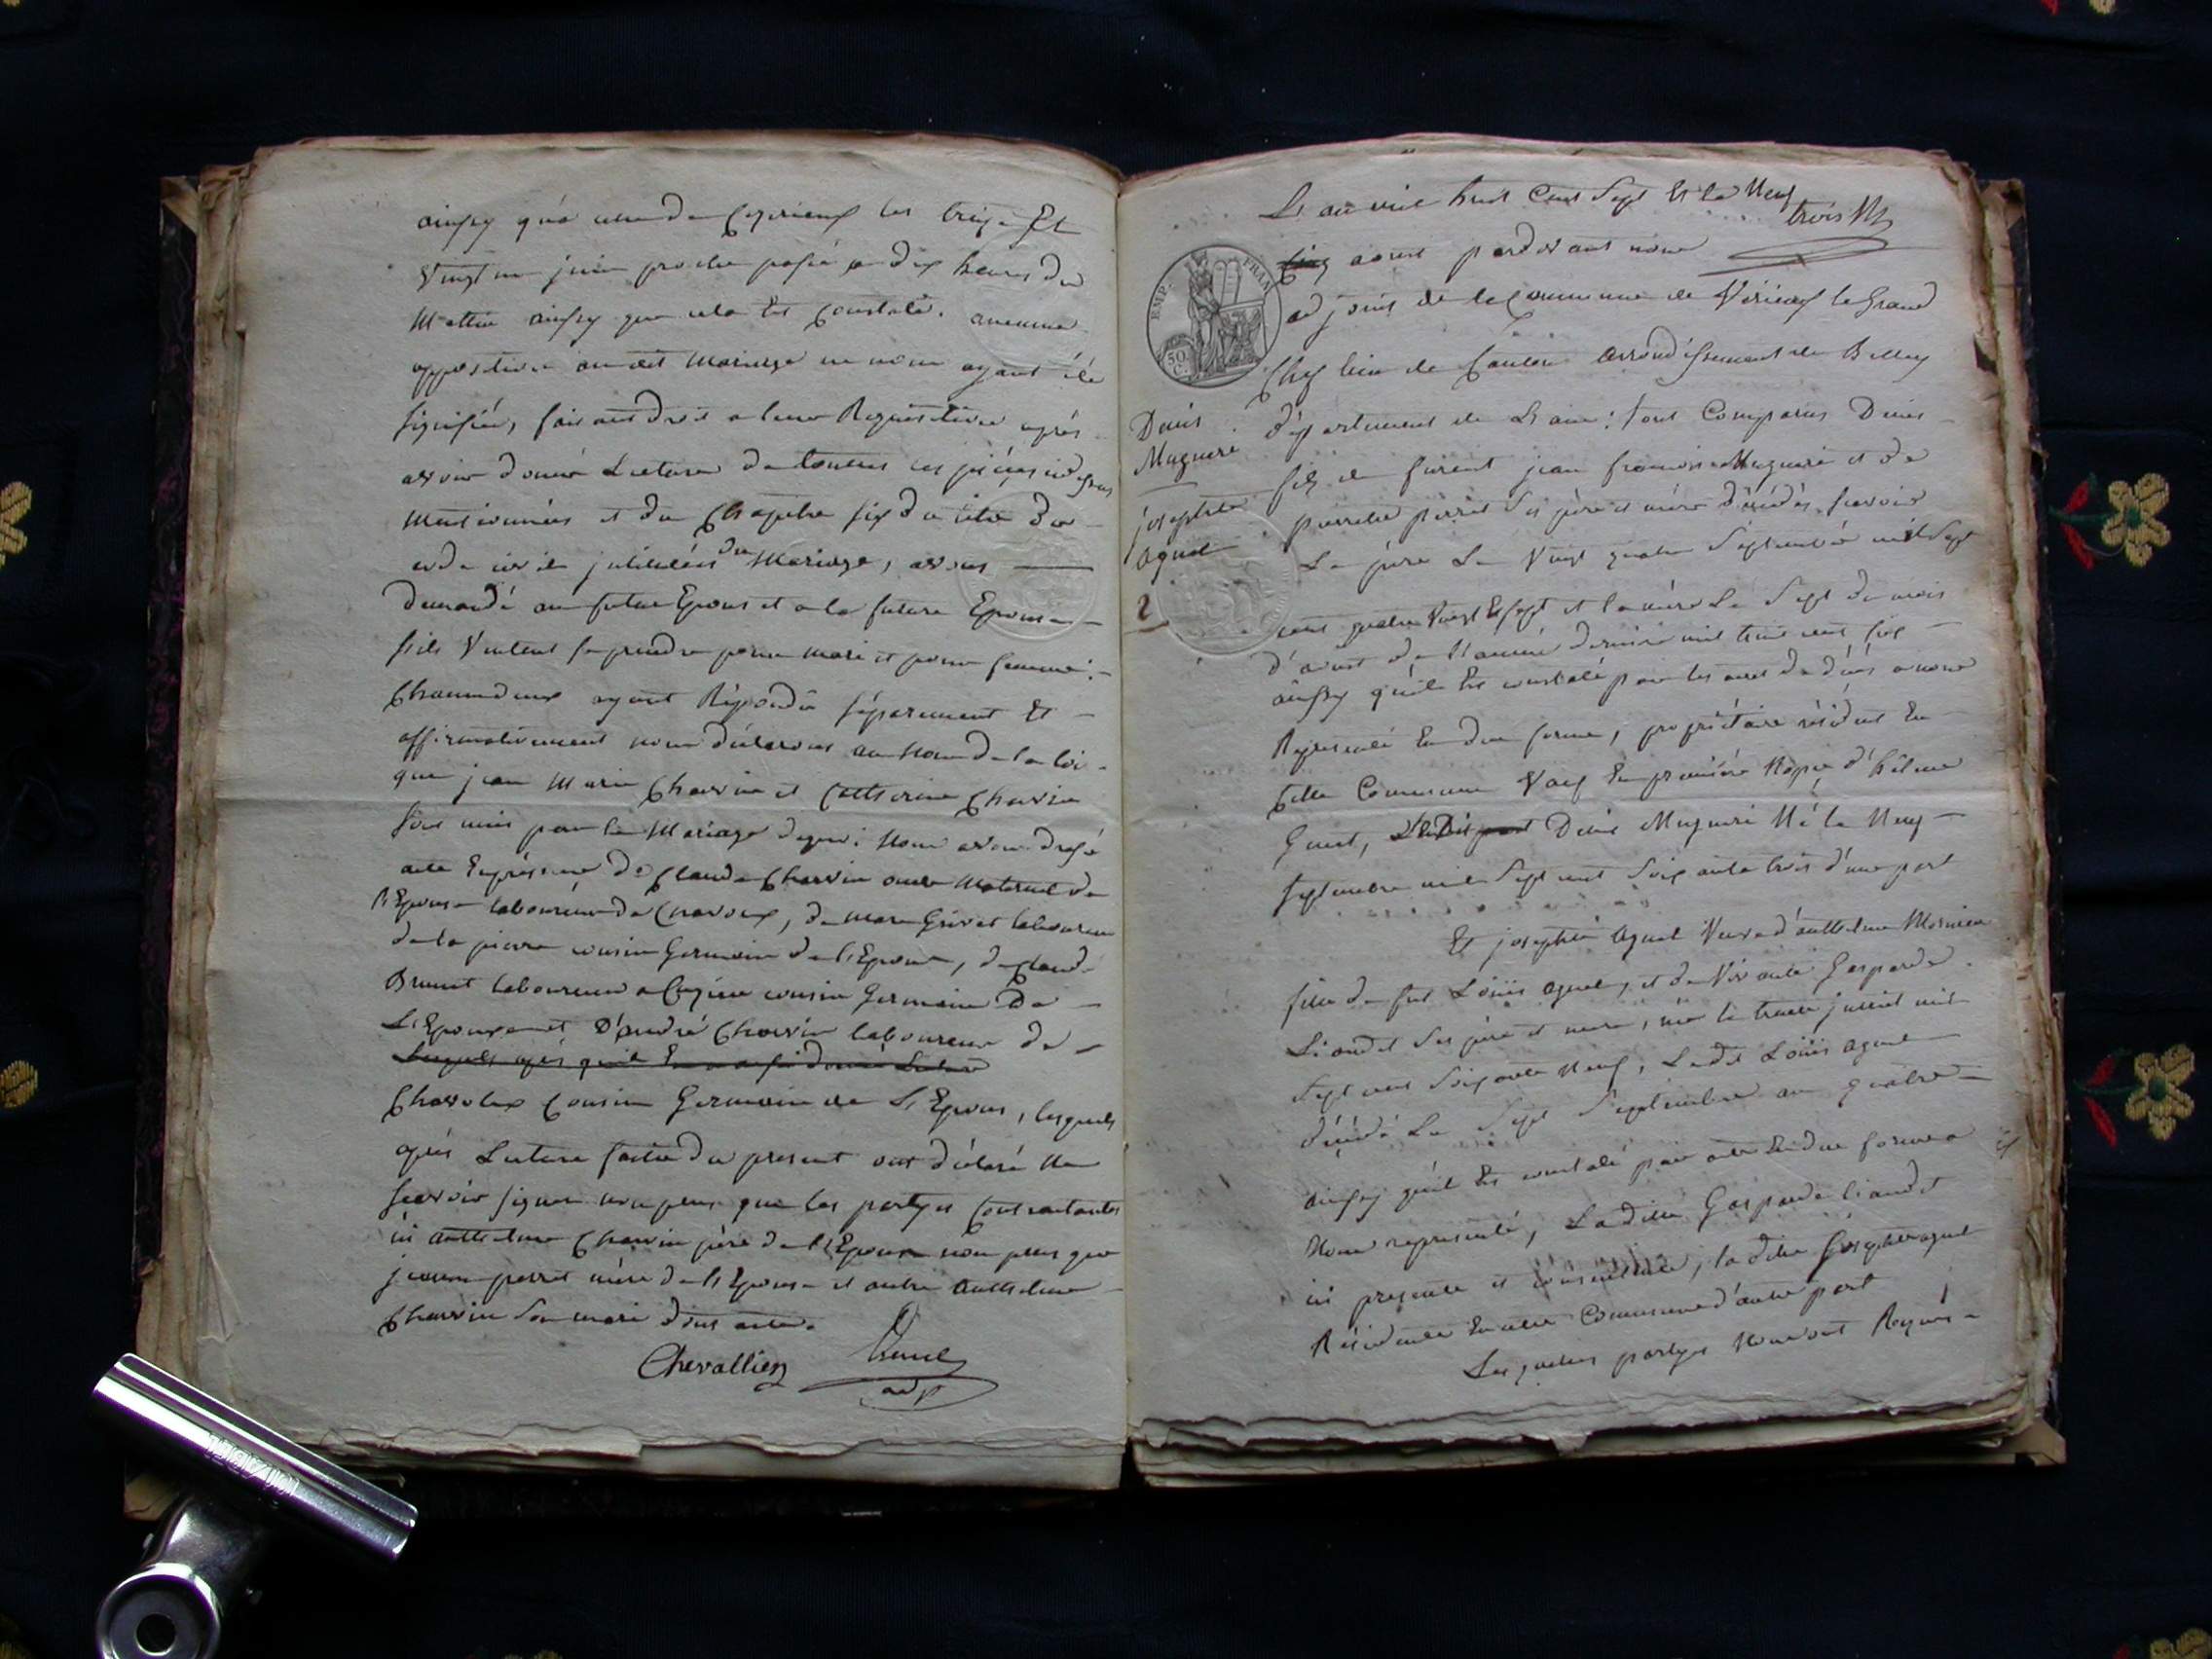 ainssy qu'a celle de Ceyzerieux les treize Et
Vingt un juin proche passé a dix heures du
Mattin ainssy que cela Est Constaté. aucunne
opposition audit Mariage ne nous ayant été
signifiée, faisant droit a leur Requisition après
avoir donné Lecture de touttes les pièces cy dessus
mentionnées et du Chapitre six du titre du
code civil intitulés du Mariage, avons
demandé au futur Epoux et a la future Epouse
s'ils Veulent se prendre pour mari et pour femme:
Chacun d'eux ayant Répondû séparement Et
affirmativement nous déclarons au Nom de la loi
que jean Marie Charvin et Catherine Charvin
sont unis par le Mariage de quoi Nous avons dressé
acte En présence de Claude Charvin oncle Maternel de
l'Epouse laboureur de Chavoux, de marc Grivet laboureur
de la pierre cousin Germain de l'Epoux, de Claude
Brunet laboureur a cousin Germain De
L'Epouse et D'andré Charvin laboureur de
Lesquels après qu'il Lecture
Chavolex Cousin Germain de L'Epoux, lesquels
après Lecture faitte du present ont déclaré Ne
scavoir signer non plus que les partyes Contractantes
ni antthelme Charvin père de l'Epoux non plus que
jeanne perret mère de l'Epouse et autre antthelme
Charvin son mari dont acte.
Chevallier
adjt
L'an mil huit Cent Sept Et le Neuf
trois M
Cinq aoust pardevant nous
adjoint de la Commune de Virieux le Grand
Chef lieu de Canton arrondissement de Belley
Denis
Mugnere
josephte
aguet
2
département de L'ain: sont Comparus Denis
fils de furent jean francois Mugnere et de
pierrette perret ses père et mère décédés, scavoir
Le père Le Vingt quatre Septembre mil Sept
cent quatre Vingt Et sept et la mère Le Sept du mois
d'aoust de l'année dernière mil huit cent six
ainssy qu'il Est constaté par les actes de décès a nous
Representé En due forme, propriétaire résidant En
Cette Commune Veuf En première Nopce d'hélène
Guiet, Denis Mugnere Né le Neuf
septembre mil Sept cent Soixante trois d'une part
Et josephte aguet Veuve d'antthelme Mornieu
fille de feu Loüis aguet, et de Vivante Gasparde
Liandet ses père et mère, née le trente juillet mil
Sept cent Soixante Neuf, Ledit Loüis aguet
décédé Le Sept Septembre an quatre
ainssy qu'il Est constaté par acte En due forme a
Nous representé, Laditte Gasparde liandet
ici presente et consentante, la ditte josephte aguet
Résidante En cette Commune d'autre part
Lesquelles partyes Nous ont Requis